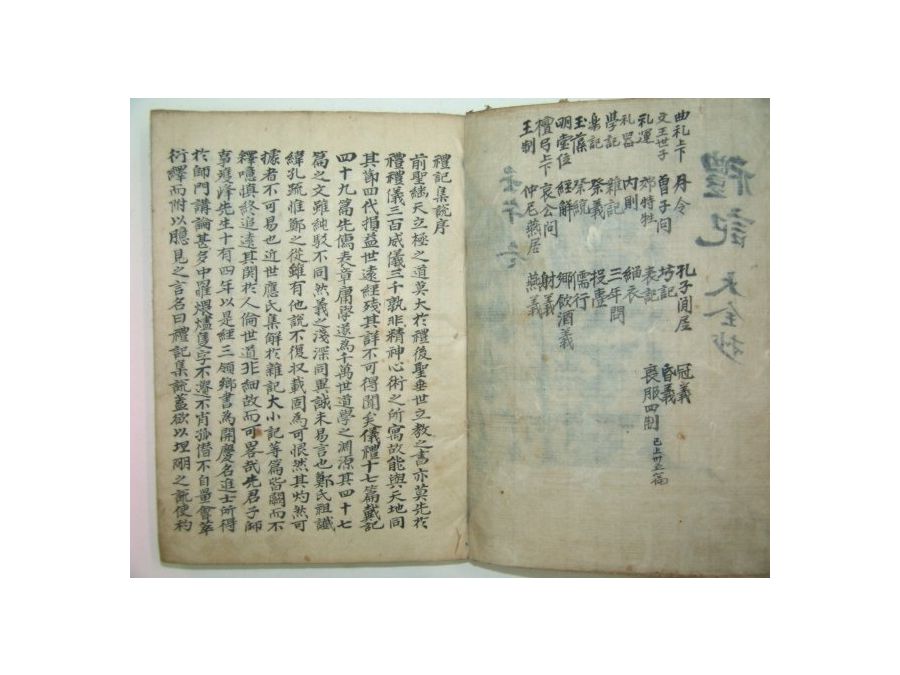 曲礼上下 月令 孔子閒居 冠義
文王世子 曾子问 坊記 昏義
礼運 郊特牲 表記 喪服四制 已上卅五篇
礼器 内則 緇衣
學記 雜記 三年問
楽記 祭義 投壺
玉藻 祭統 儒行
明堂位 經解 鄉飲酒義
檀弓上下 哀公问 射義
王制 仲尼燕居 燕義
禮記 大全抄
禮記集說序
前聖継天立極之道莫大於禮後聖垂世立教之書亦莫先於
禮禮儀三百威儀三千孰非精神心術之所寓故能與天地同
其節四代損益世遠經残其詳不可得聞矣儀禮十七篇戴記
四十九篇先儒表章庸學遂為千萬世道學之淵源其四十七
篇之文雖純駁不同然義之淺深同異誠未易言也鄭氏祖讖
緯孔疏惟鄭之從雖有他說不復収載固為可恨然其灼然可
據者不可易也近世應氏集解於雜記大小記等篇皆闕而不
釋噫慎終追遠其関於人倫世道非細故而可畧哉先君子師
事雙峰先生十有四年以是經三領鄉書為開慶名進士所得
於師門講論甚多中罹煨燼隻字不遺不肖孤僣不自量會萃
衍繹而附以臆見之言名曰禮記集說蓋欲以坦明之說使初